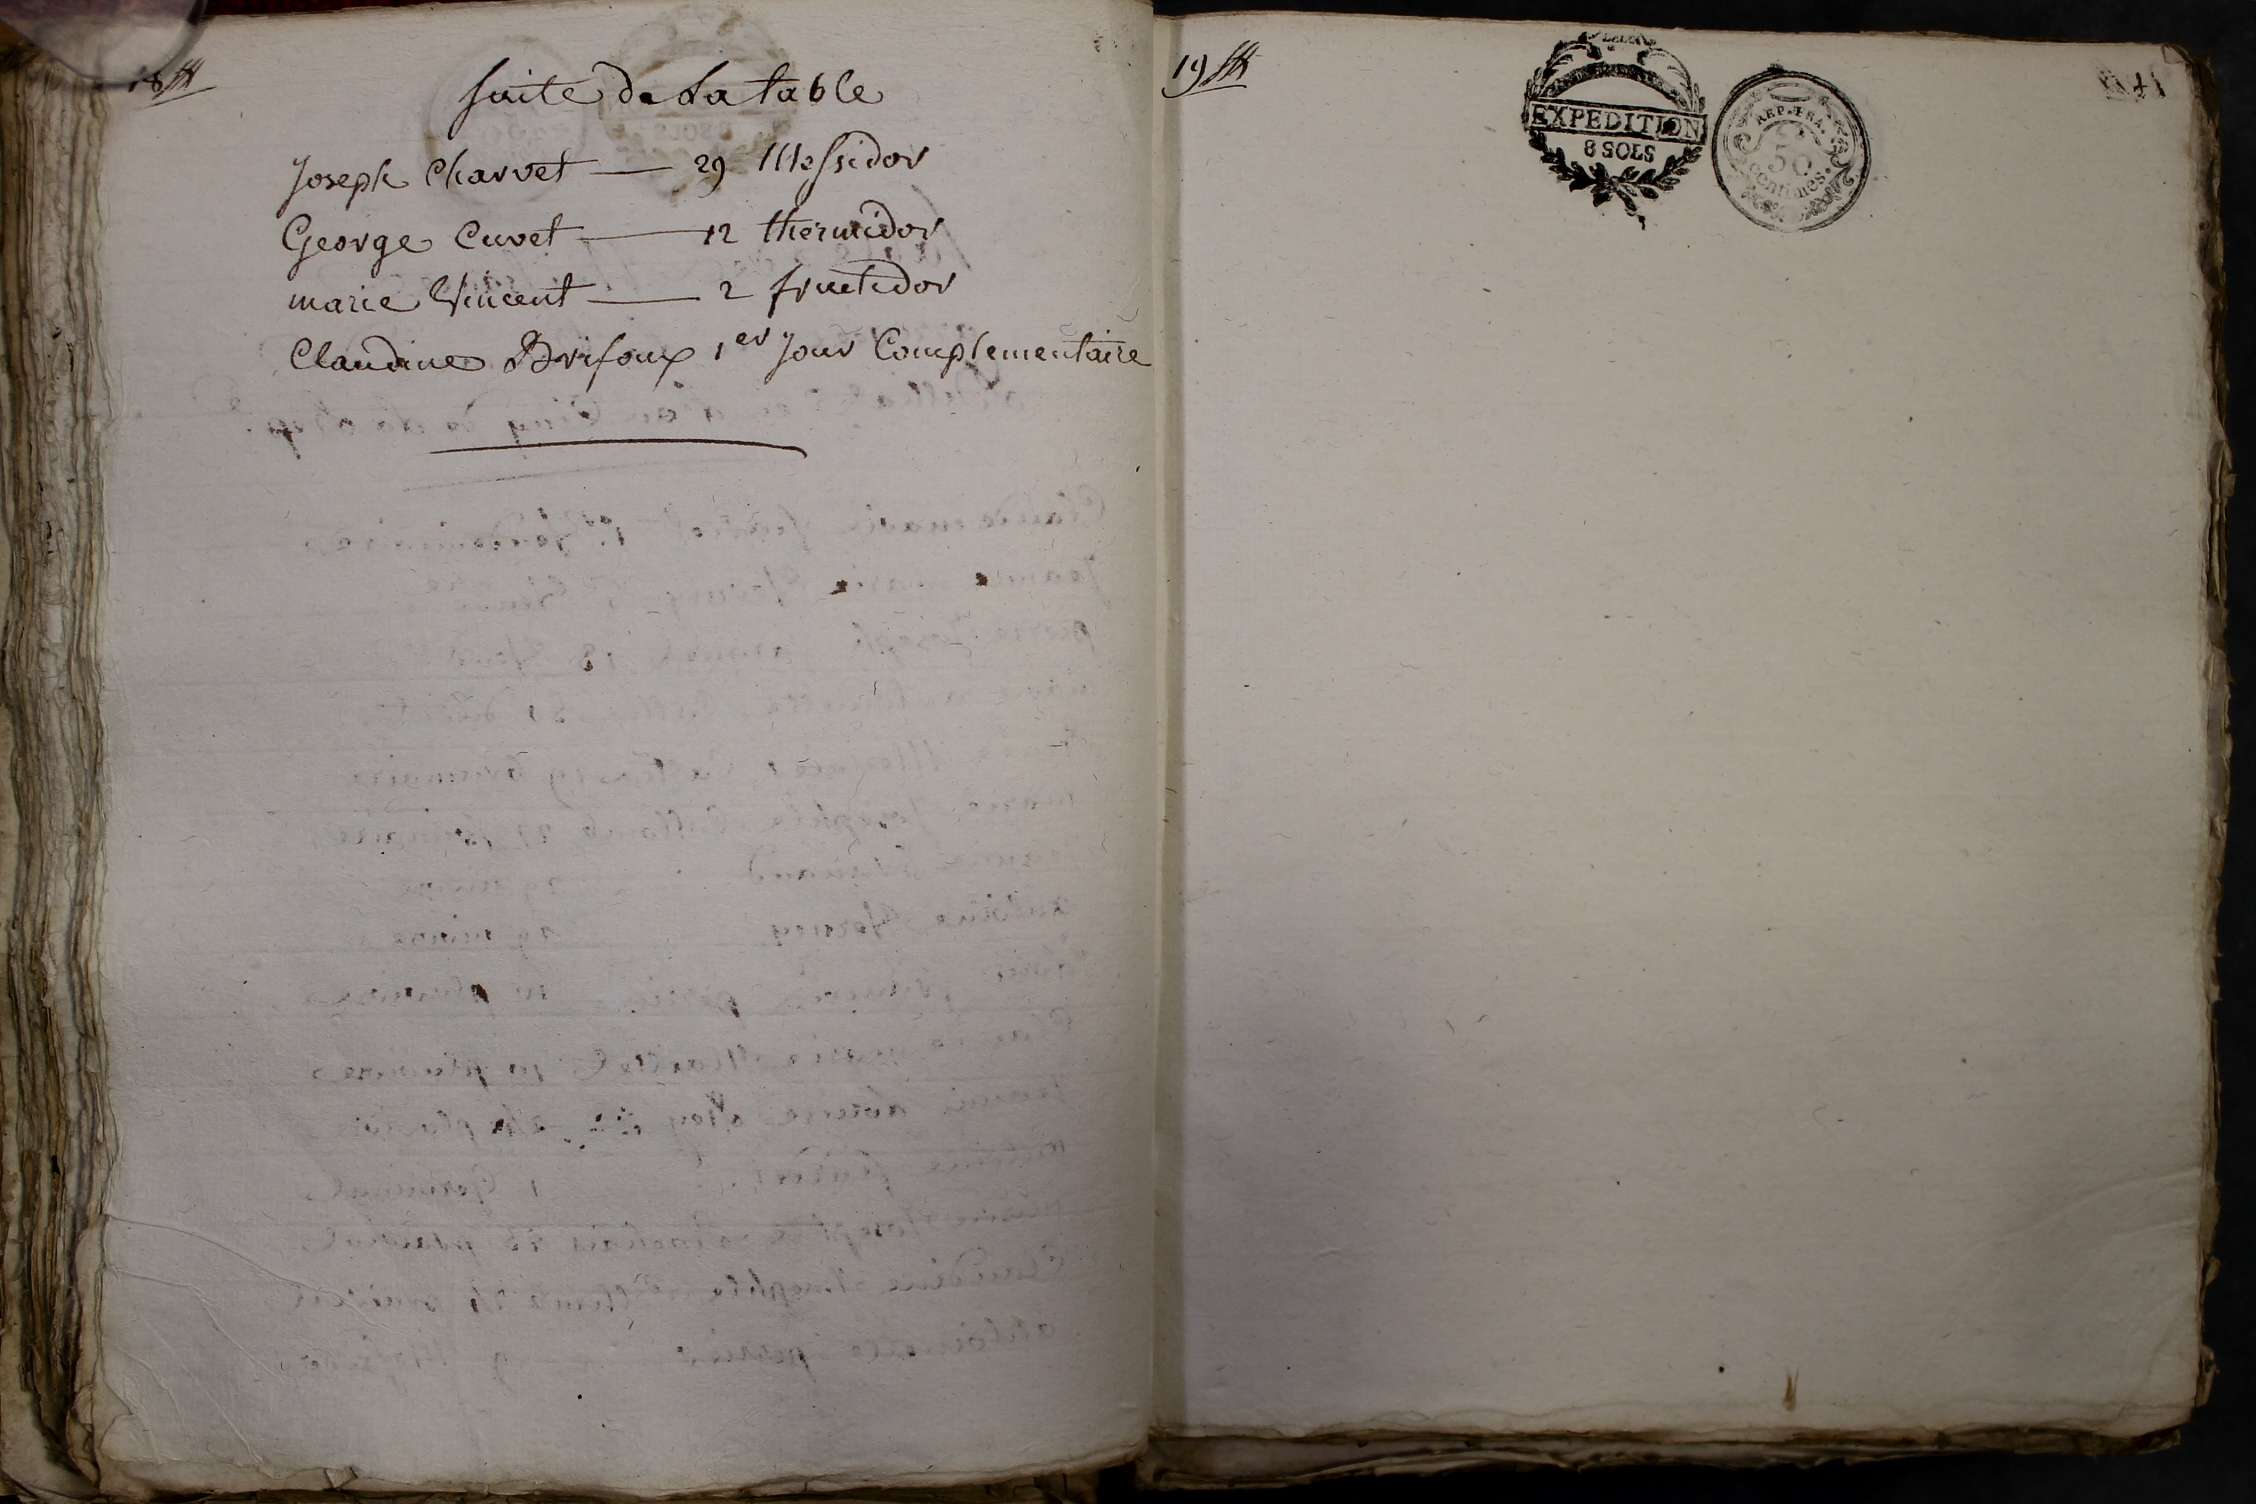 18
suite de la table
Joseph Charvet — 29 Messidor
George Cuvet — 12 thermidor
marie Vincent — 2 fructidor
Claudine Brifoux 1er Jour Complementaire
19
EXPEDITION
8 SOLS
REP. FRA.
50
centimes.